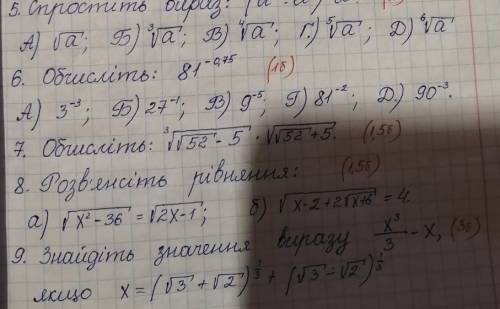 5. Спростить вираз:
А) √a; Б) ∛a; В) ∜a; Г) ⁵√a; Д) ⁶√a
6. Обчисліть: 81^(-0,75) (1б)
А) 3⁻³; Б) 27⁻¹; В) 9⁻⁵; Г) 81⁻²; Д) 90⁻³.
7. Обчисліть: ∛(√52 - 5) · √(√52 + 5). (1,5б)
8. Розв'яксіть рівняння: (1,5б)
а) √(x² - 36) = √(2x - 1); б) √(x - 2 + 2√(x + 6)) = 4.
9. Знайдіть значення виразу x³/3 - x, (3б)
якщо x = (√3 + √2)^(1/3) + (√3 - √2)^(1/3)